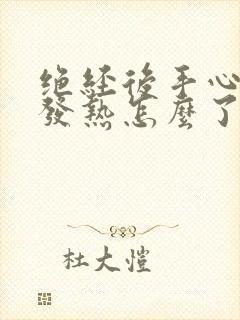 绝经後手心
發熱怎麼了
杜大愷